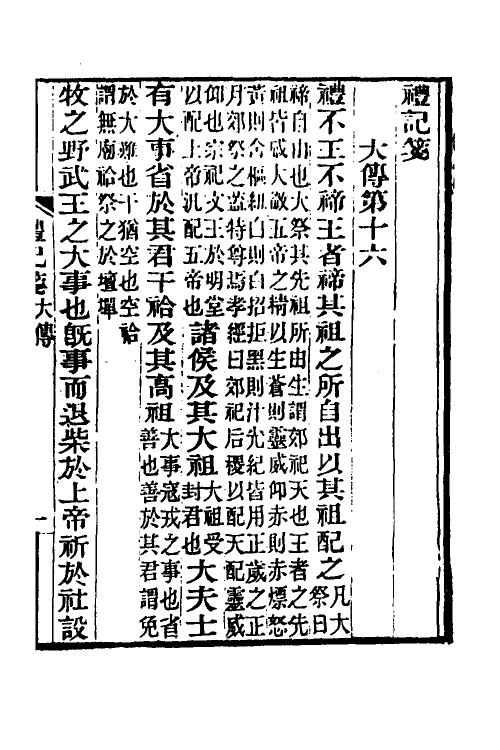 禮記箋
大傳第十六
禮不王不禘王者禘其祖之所自出以其祖配之凡大祭曰
禘自出也大祭其先祖所由生謂郊祀天也王者之先
祖皆感大微五帝之精以生蒼則靈威仰赤則赤熛怒
黃則含樞紐白則白招拒黑則汁光紀皆用正歲之正
月郊祭之蓋特尊焉孝經曰郊祀后稷以配天配靈威
仰也宗祀文王於明堂
以配上帝汎配五帝也諸侯及其大祖大祖受封君也大夫士
有大事省於其君干祫及其高祖大事寇戎之事也省善也善於其君謂免
於大難也干猶空也空祫
謂無廟祫祭之於壇墠
牧之野武王之大事也旣事而退柴於上帝祈於社設
禮記箋 大傳 一